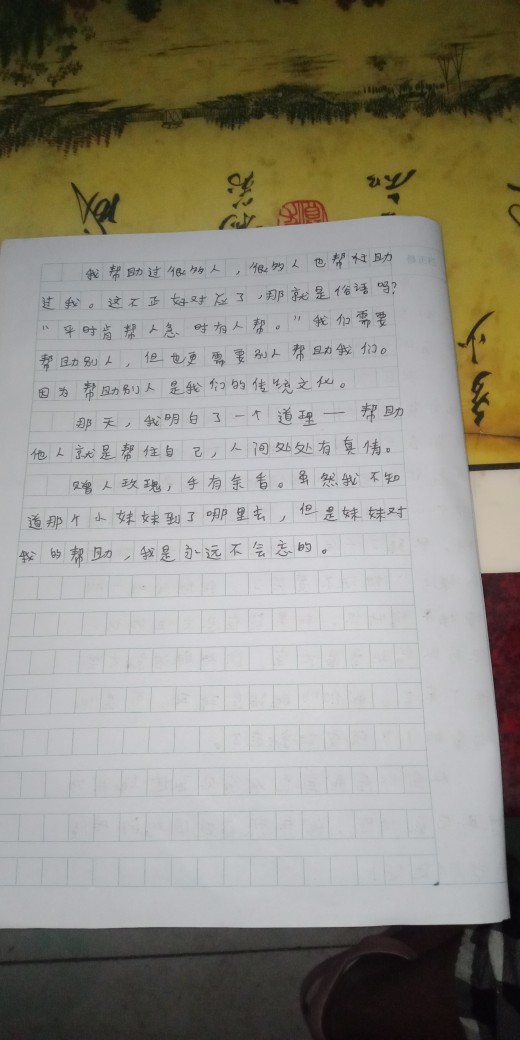 我帮助过很多人，很多人也帮忙助
过我。这不正好对应了，那就是俗语吗？
“平时肯帮人急时有人帮。”我们需要
帮助别人，但也更需要别人帮助我们。
因为帮助别人是我们的传统文化。
那天，我明白了一个道理一帮助
他人就是帮住自己，人间处处有真情。
赠人玫瑰，手有余香。虽然我不知
道那个小妹妹到了哪里去，但是妹妹对
我的帮助，我是永远不会忘的。